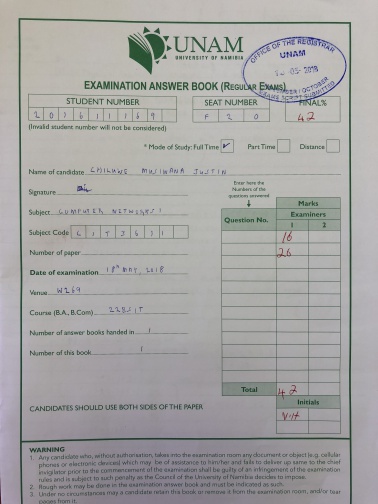 UNAM
UNIVERSITY OF NAMIBIA
OFFICE OF THE REGISTRAR
UNAM
-05-2018
EXAMINATION ANSWER BOOK (REGULAR EXAMS)
STUDENT NUMBER
SEAT NUMBER
FINAL%
F 2 0
42
(Invalid student number will not be considered)
* Mode of Study: Full Time ✓ Part Time Distance
Name of candidate CHILUWE MUSIWANA JUSTIN
Signature
Enter here the Numbers of the questions answered
Subject COMPUTER NETWORKS I
Question No.
Marks
Examiners
1 2
Subject Code
16
Number of paper
26
Date of examination 18th MAY, 2018
Venue W269
Course (B.A., B.Com) 22BSIT
Number of answer books handed in 1
Number of this book 1
Total 42
Initials
CANDIDATES SHOULD USE BOTH SIDES OF THE PAPER
WARNING
1. Any candidate who, without authorisation, takes into the examination room any document or object (e.g. cellular
phones or electronic devices) which may be of assistance to him/her and fails to deliver up same to the chief
invigilator prior to the commencement of the examination shall be guilty of an infringement of the examination
rules and is subject to such penalty as the Council of the University of Namibia decides to impose.
2. Rough work may be done in the examination answer book and must be indicated as such.
3. Under no circumstances may a candidate retain this book or remove it from the examination room, and/or tear
pages from it.